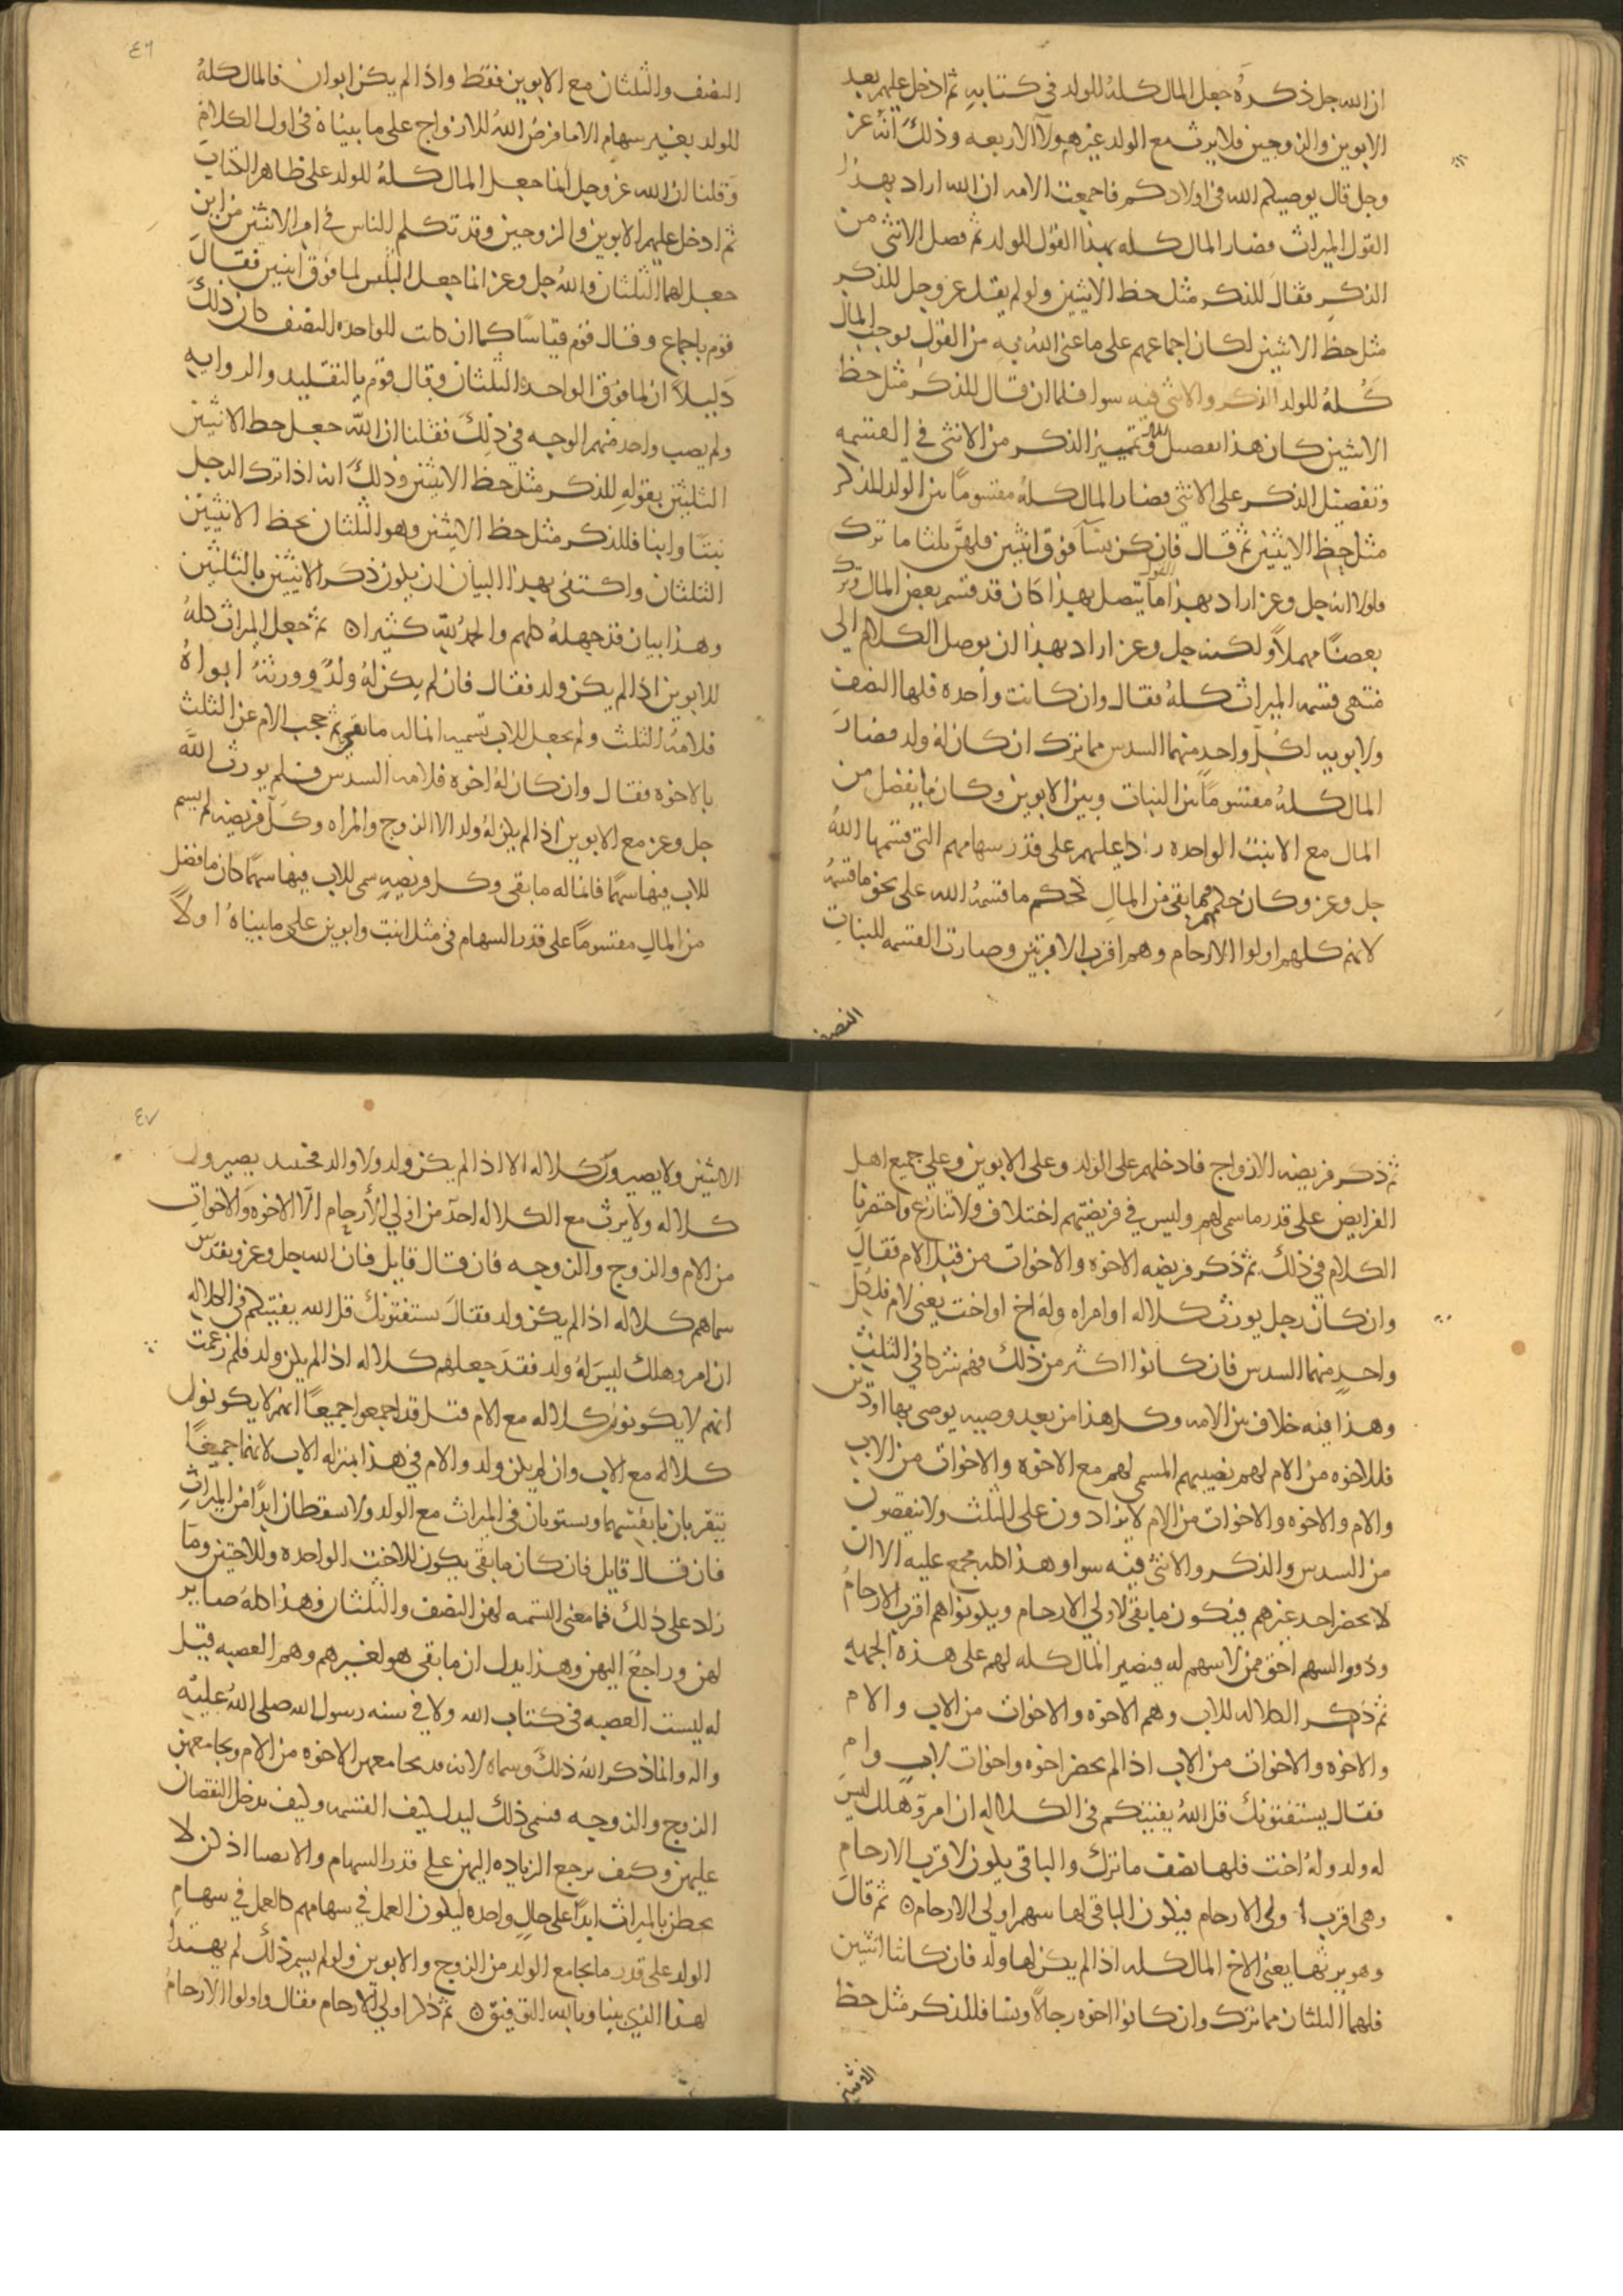 ان الله جل ذكره جعل المال كله للولد في كتابه ثم ادخل عليهم بعد
الابوين والزوجين فلا يرث مع الولد غير هولا الاربعه وذلك انه عز
وجل قال يوصيكم الله في اولادكم فاجمعت الامه ان الله اراد بهذا
القول الميراث فصار المال كله بهذا القول للولد ثم فصل الانثى من
الذكر فقال للذكر مثل حظ الانثيين ولو لم يقل عز وجل للذكر
مثل حظ الانثيين لكان اجماعهم على ما عنى الله به من القول يوجب المال
كله للولد الذكر والانثى فيه سوا فلما ان قال للذكر مثل حظ
الانثيين كان هذا تفصيل المال وتمييز الذكر من الانثى في القسمه
وتفضيل الذكر على الانثى فصار المال كله مقسوما بين الولد للذكر
مثل حظ الانثيين ثم قال فان كن نسآ فوق اثنتين فلهن ثلثا ما ترك
فلولا انه جل وعز اراد بهذا القول ما يتصل بهذا كان قد قسم بعض المال وترك
بعضا مهملا ولكنه جل وعز اراد بهذا ان يوصل الكلام الى
منتهى قسمه الميراث كله فقال وان كانت واحده فلها النصف
ولابويه لكل واحد منهما السدس مما ترك ان كان له ولد فصار
المال كله مقسوما بين البنات وبين الابوين وكان ما يفضل من
المال مع الابنت الواحده ردا عليهم على قدر سهامهم التي قسمها الله
جل وعز وكان حكمهم فيما بقي من المال كحكم ما قسمه الله على نحو ما قسمه
لانهم كلهم اولوا الارحام وهم اقرب الاقربين وصارت القسمه للبنات
النصف
٤٦
النصف والثلثان مع الابوين فقط واذا لم يكن ابوان فالمال كله
للولد بغير سهام الا ما فرض الله للازواج على ما بيناه في اول الكلام
وقلنا ان الله عز وجل انما جعل المال كله للولد على ظاهر الكتاب
ثم ادخل عليهم الابوين والزوجين وقد تكلم الناس في امر الانثيين من اين
جعل لهما الثلثان والله جل وعز انما جعل الثلثين لما فوق اثنتين فقال
قوم باجماع وقال قوم قياسا كما ان كانت للواحده النصف كان ذلك
دليلا ان لما فوق الواحده الثلثان وقال قوم بالتقليد والروايه
ولم يصب واحد منهم الوجه في ذلك فقلنا ان الله جعل حظ الانثيين
الثلثين بقوله للذكر مثل حظ الانثيين وذلك انه اذا ترك الرجل
بنتا وابنا فللذكر مثل حظ الانثيين وهو الثلثان فحظ الانثيين
الثلثان واكتفى بهذا البيان ان يكون ذكر الانثيين بالثلثين
وهذا بيان قد جهله كلهم والحمد لله كثيرا ٥ ثم جعل الميراث كله
للابوين اذا لم يكن ولد فقال فان لم يكن له ولد وورثه ابواه
فلامه الثلث ولم يجعل للاب تسميه انما له ما بقي ثم حجب الام عن الثلث
بالاخوه فقال وان كان له اخوه فلامه السدس فلم يورث الله
جل وعز مع الابوين اذا لم يكن له ولد الا الزوج والمراه وكل فريضه لم يسم
للاب فيها سهما فانما له ما بقي وكل فريضه سمى للاب فيها سهما كان ما فضل
من المال مقسوما على قدر السهام في مثل ابنت وابوين على ما بيناه اولا
ثم ذكر فريضه الازواج فادخلهم على الولد وعلى الابوين وعلى جميع اهل
الفرايض على قدر ما سمى لهم وليس في فريضتهم اختلاف ولا تنازع فاختصرنا
الكلام في ذلك ثم ذكر فريضه الاخوه والاخوات من قبل الام فقال
وان كان رجل يورث كلاله او امراه وله اخ او اخت يعني لام فلكل
واحد منهما السدس فان كانوا اكثر من ذلك فهم شركا في الثلث
وهذا فيه خلاف بين الامه وكل هذا من بعد وصيه يوصي بها او دين
فللاخوه من الام لهم نصيبهم المسمى لهم مع الاخوه والاخوات من الاب
والام والاخوه والاخوات من الام لا يزادون على الثلث ولا ينقصون
من السدس والذكر والانثى فيه سوا وهذا كله مجمع عليه الا ان
لا يحضر احد غيرهم فيكون ما بقي لاولي الارحام ويكونوا هم اقرب الارحام
وذوو السهم احق ممن لا سهم له فيصير المال كله لهم على هذه الجهه
ثم ذكر الكلاله للاب وهم الاخوه والاخوات من الاب والام
والاخوه والاخوات من الاب اذا لم يحضر اخوه واخوات لاب وام
فقال يستفتونك قل الله يفتيكم في الكلاله ان امرؤ هلك ليس
له ولد وله اخت فلها نصف ما ترك والباقي يكون لاقرب الارحام
وهي اقرب اولي الارحام فيكون الباقي لها سهم اولي الارحام ٥ ثم قال
وهو يرثها يعني الاخ المال كله اذا لم يكن لها ولد فان كانتا اثنتين
فلهما الثلثان مما ترك وان كانوا اخوه رجالا ونسا فللذكر مثل حظ
الانثيين
٤٧
الانثيين ولا يصيرون كلاله الا اذا لم يكن ولد ولا والد فحينيد يصيرون
كلاله ولا يرث مع الكلاله احد من اولي الارحام الا الاخوه والاخوات
من الام والزوج والزوجه فان قال قايل فان الله جل وعز وتقدس
سماهم كلاله اذا لم يكن ولد فقال يستفتونك قل الله يفتيكم في الكلاله
ان امرو هلك ليس له ولد فقد جعلهم كلاله اذا لم يكن ولد فلم زعمت
انهم لا يكونون كلاله مع الام قيل قد اجمعوا جميعا انهم لا يكونون
كلاله مع الاب وان لم يكن ولد والام في هذا بمنزله الاب لانهما جميعا
يتقربان بانفسهما ويستويان في الميراث مع الولد ولا يسقطان ابدا من الميراث
فان قال قايل فان كان ما بقي يكون للاخت الواحده وللاختين وما
زاد على ذلك فما معنى التسميه لهن النصف والثلثان فهذا كله صاير
لهن وراجع اليهن وهذا يدل ان ما بقي هو لغيرهم وهم العصبه قيل
له ليست العصبه في كتاب الله ولا في سنه رسول الله صلى الله عليه
واله وانما ذكر الله ذلك وسماه لانه قد يجامعهن الاخوه من الام ويجامعهن
الزوج والزوجه فسمى ذلك ليدل كيف القسمه وكيف يدخل النقصان
عليهن وكيف يرجع الزياده اليهن على قدر السهام والانصبا اذا كن لا
يحطن بالميراث ابدا على حال واحده ليكون العمل في سهامهم كالعمل في سهام
الولد على قدر ما يجامع الولد من الزوج والابوين ولو لم يسم ذلك لم يهتدا
لهذا الذي بينا وبالله التوفيق ٥ ثم ذكر اولي الارحام فقال واولوا الارحام